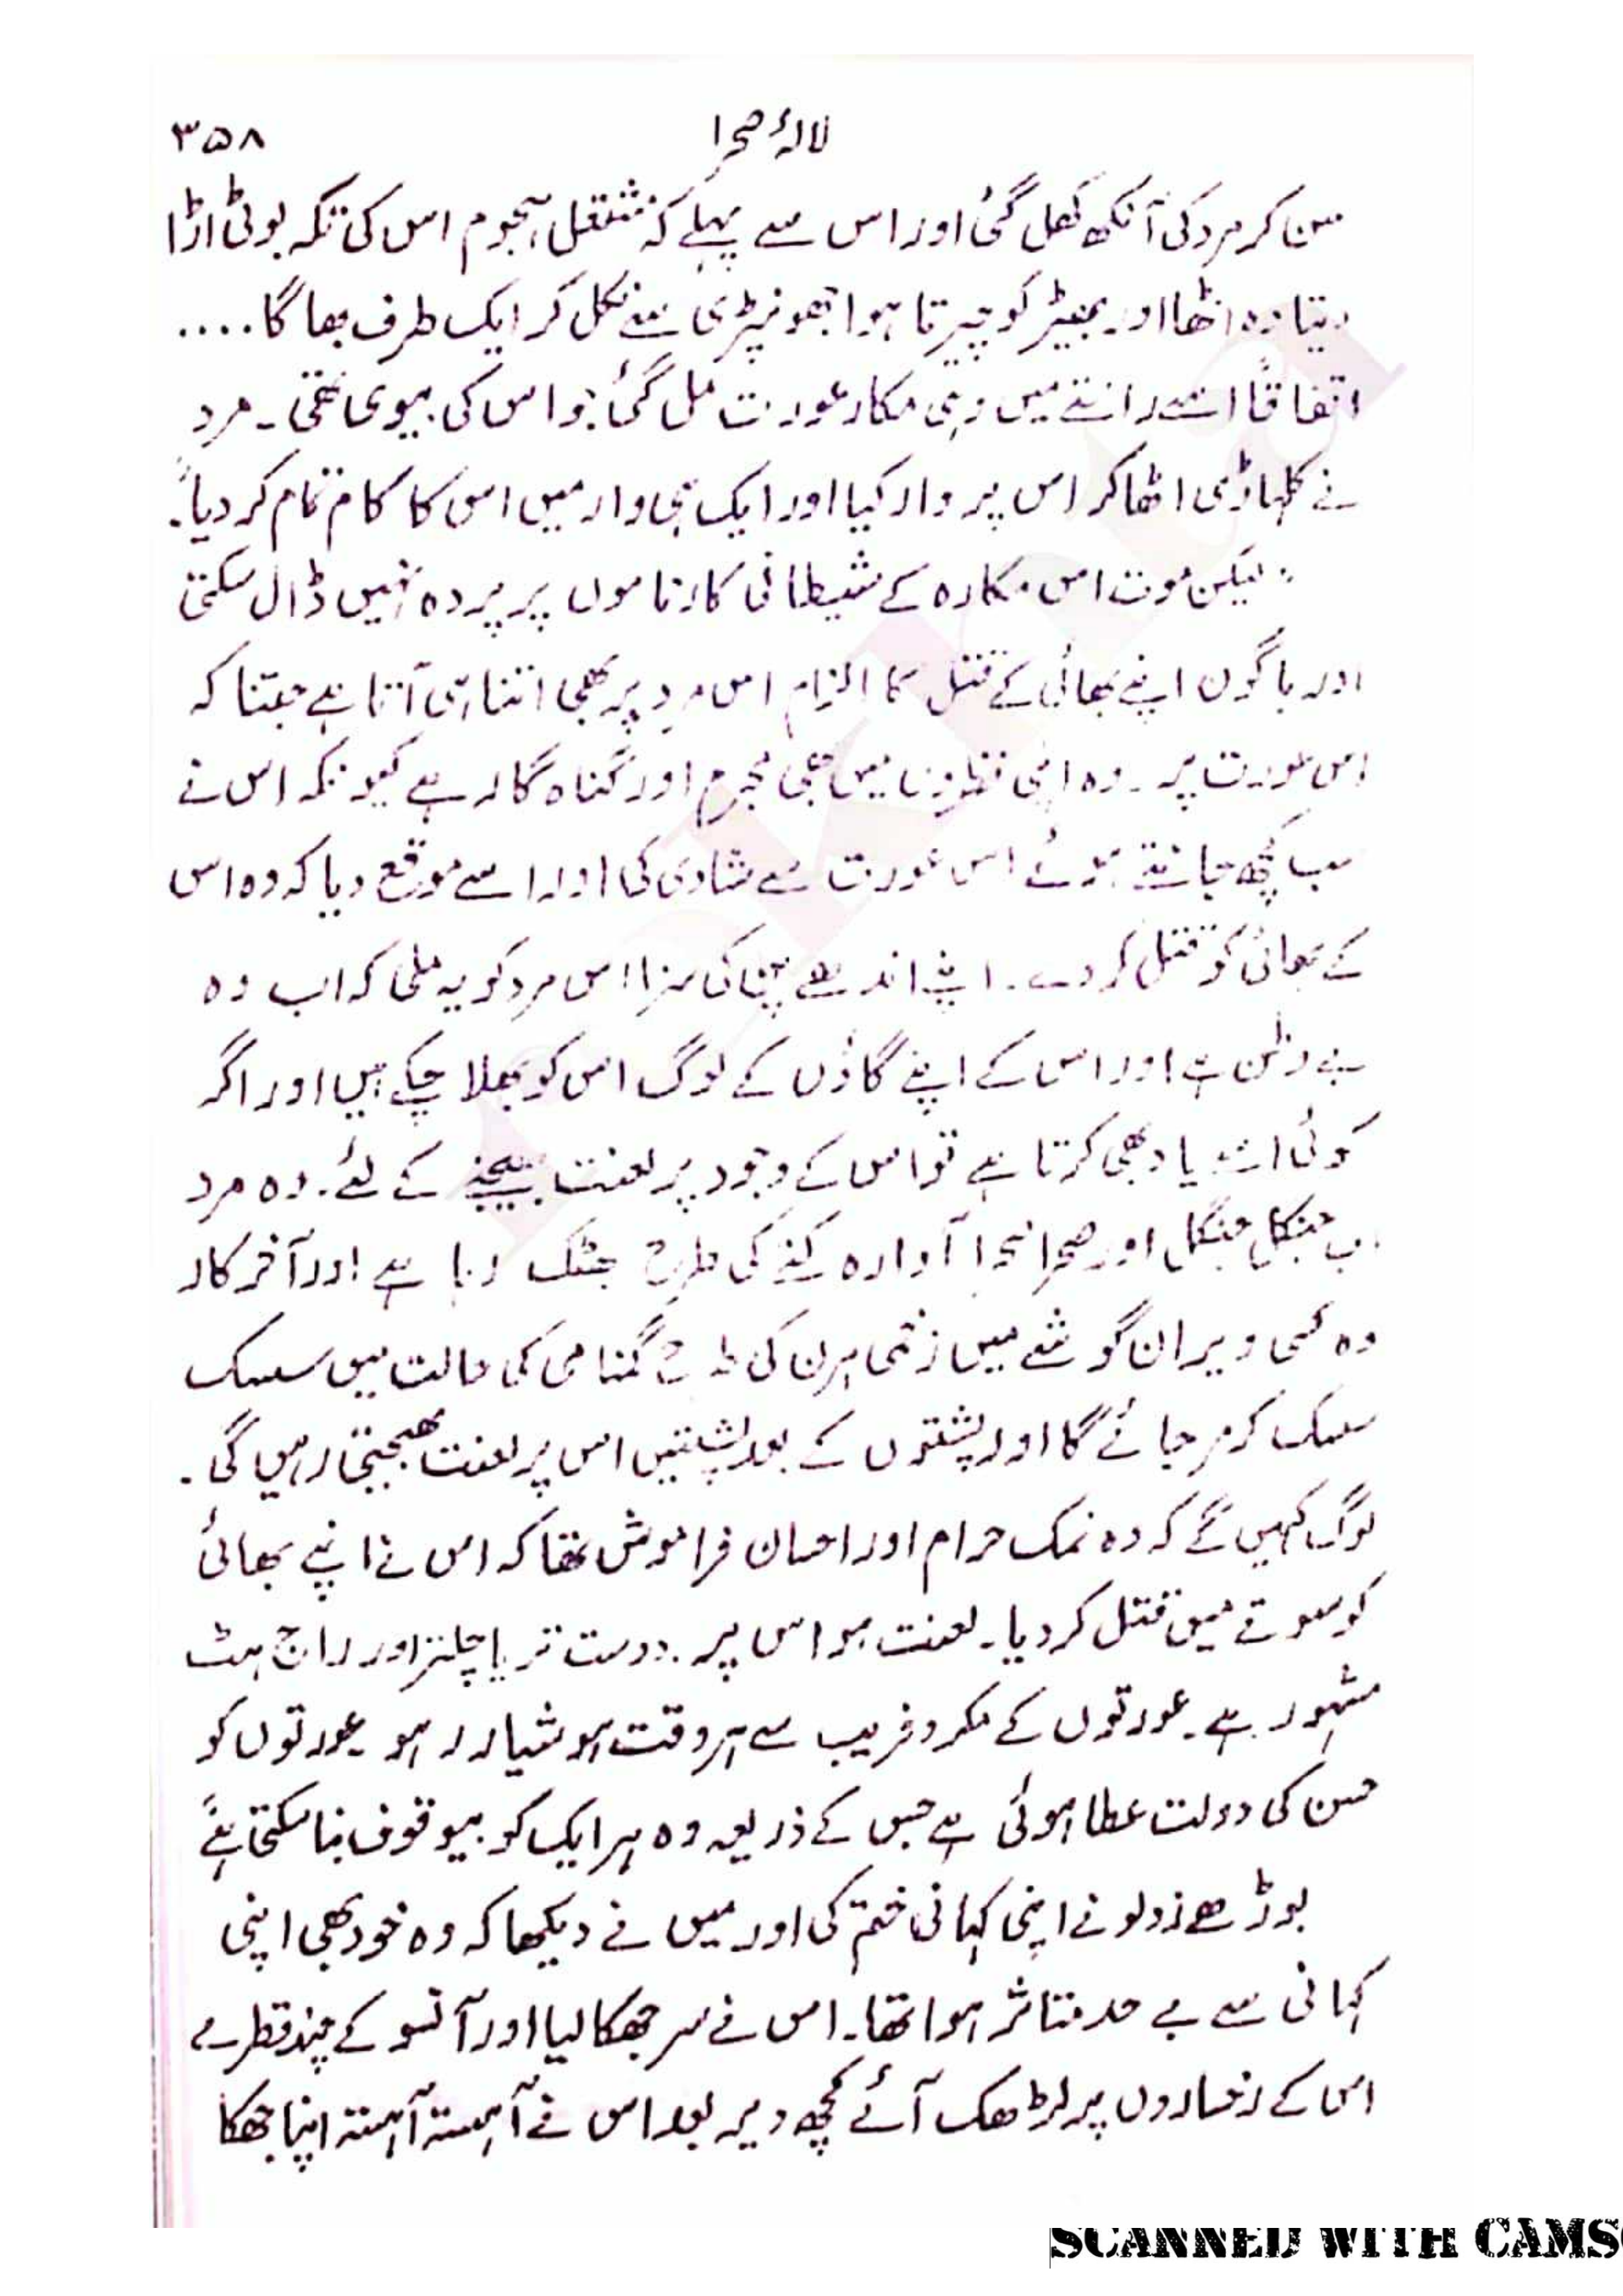 لالۂ صحرا ۳۵۸
سن کر مرد کی آنکھ کھل گئی اور اس سے پہلے کہ مشتعل ہجوم اس کی تکہ بوٹی اڑا
دیتا وہ اٹھا اور بھیڑ کو چیرتا ہوا جھونپڑی سے نکل کر ایک طرف بھاگا ....
اتفاقاً اسے راستے میں وہی مکار عورت مل گئی جو اس کی بیوی تھی ۔ مرد
نے کلہاڑی اٹھا کر اس پر وار کیا اور ایک ہی وار میں اس کا کام تمام کر دیا۔"
" لیکن موت اس مکارہ کے شیطانی کارناموں پر پردہ نہیں ڈال سکتی
اور باگون اپنے بھائی کے قتل کا الزام اس مرد پر بھی اتنا ہی آتا ہے جتنا کہ
اس عورت پر ۔ وہ اپنی نظروں میں بھی مجرم اور گناہ گار ہے کیونکہ اس نے
سب کچھ جانتے ہوئے اس عورت سے شادی کی اور اسے موقع دیا کہ وہ اس
کے بھائی کو قتل کر دے ۔ اپنے اندھے پن کی سزا اس مرد کو یہ ملی کہ اب وہ
بے وطن ہے اور اس کے اپنے گاؤں کے لوگ اس کو بھلا چکے ہیں اور اگر
کوئی اسے یاد بھی کرتا ہے تو اس کے وجود پر لعنت بھیجنے کے لئے ۔ وہ مرد
اب جنگل جنگل اور صحرا صحرا آوارہ کتے کی طرح بھٹک رہا ہے اور آخر کار
وہ کسی ویران گوشے میں زخمی ہرن کی طرح گمنامی کی حالت میں سسک
سسک کر مر جائے گا اور پشتوں کے بعد پشتیں اس پر لعنت بھیجتی رہیں گی ۔
لوگ کہیں گے کہ وہ نمک حرام اور احسان فراموش تھا کہ اس نے اپنے بھائی
کو سوتے میں قتل کر دیا ۔ لعنت ہو اس پر ۔ دوست تریا چلتر اور راج ہٹ
مشہور ہے ۔ عورتوں کے مکر و فریب سے ہر وقت ہوشیار رہو ۔ عورتوں کو
حسن کی دولت عطا ہوئی ہے جس کے ذریعہ وہ ہر ایک کو بیوقوف بنا سکتی ہے"
بوڑھے زولو نے اپنی کہانی ختم کی اور میں نے دیکھا کہ وہ خود بھی اپنی
کہانی سے بے حد متاثر ہوا تھا ۔ اس نے سر جھکا لیا اور آنسو کے چند قطرے
اس کے رخساروں پر لڑھک آئے کچھ دیر بعد اس نے آہستہ آہستہ اپنا جھکا
SCANNED WITH CAMS